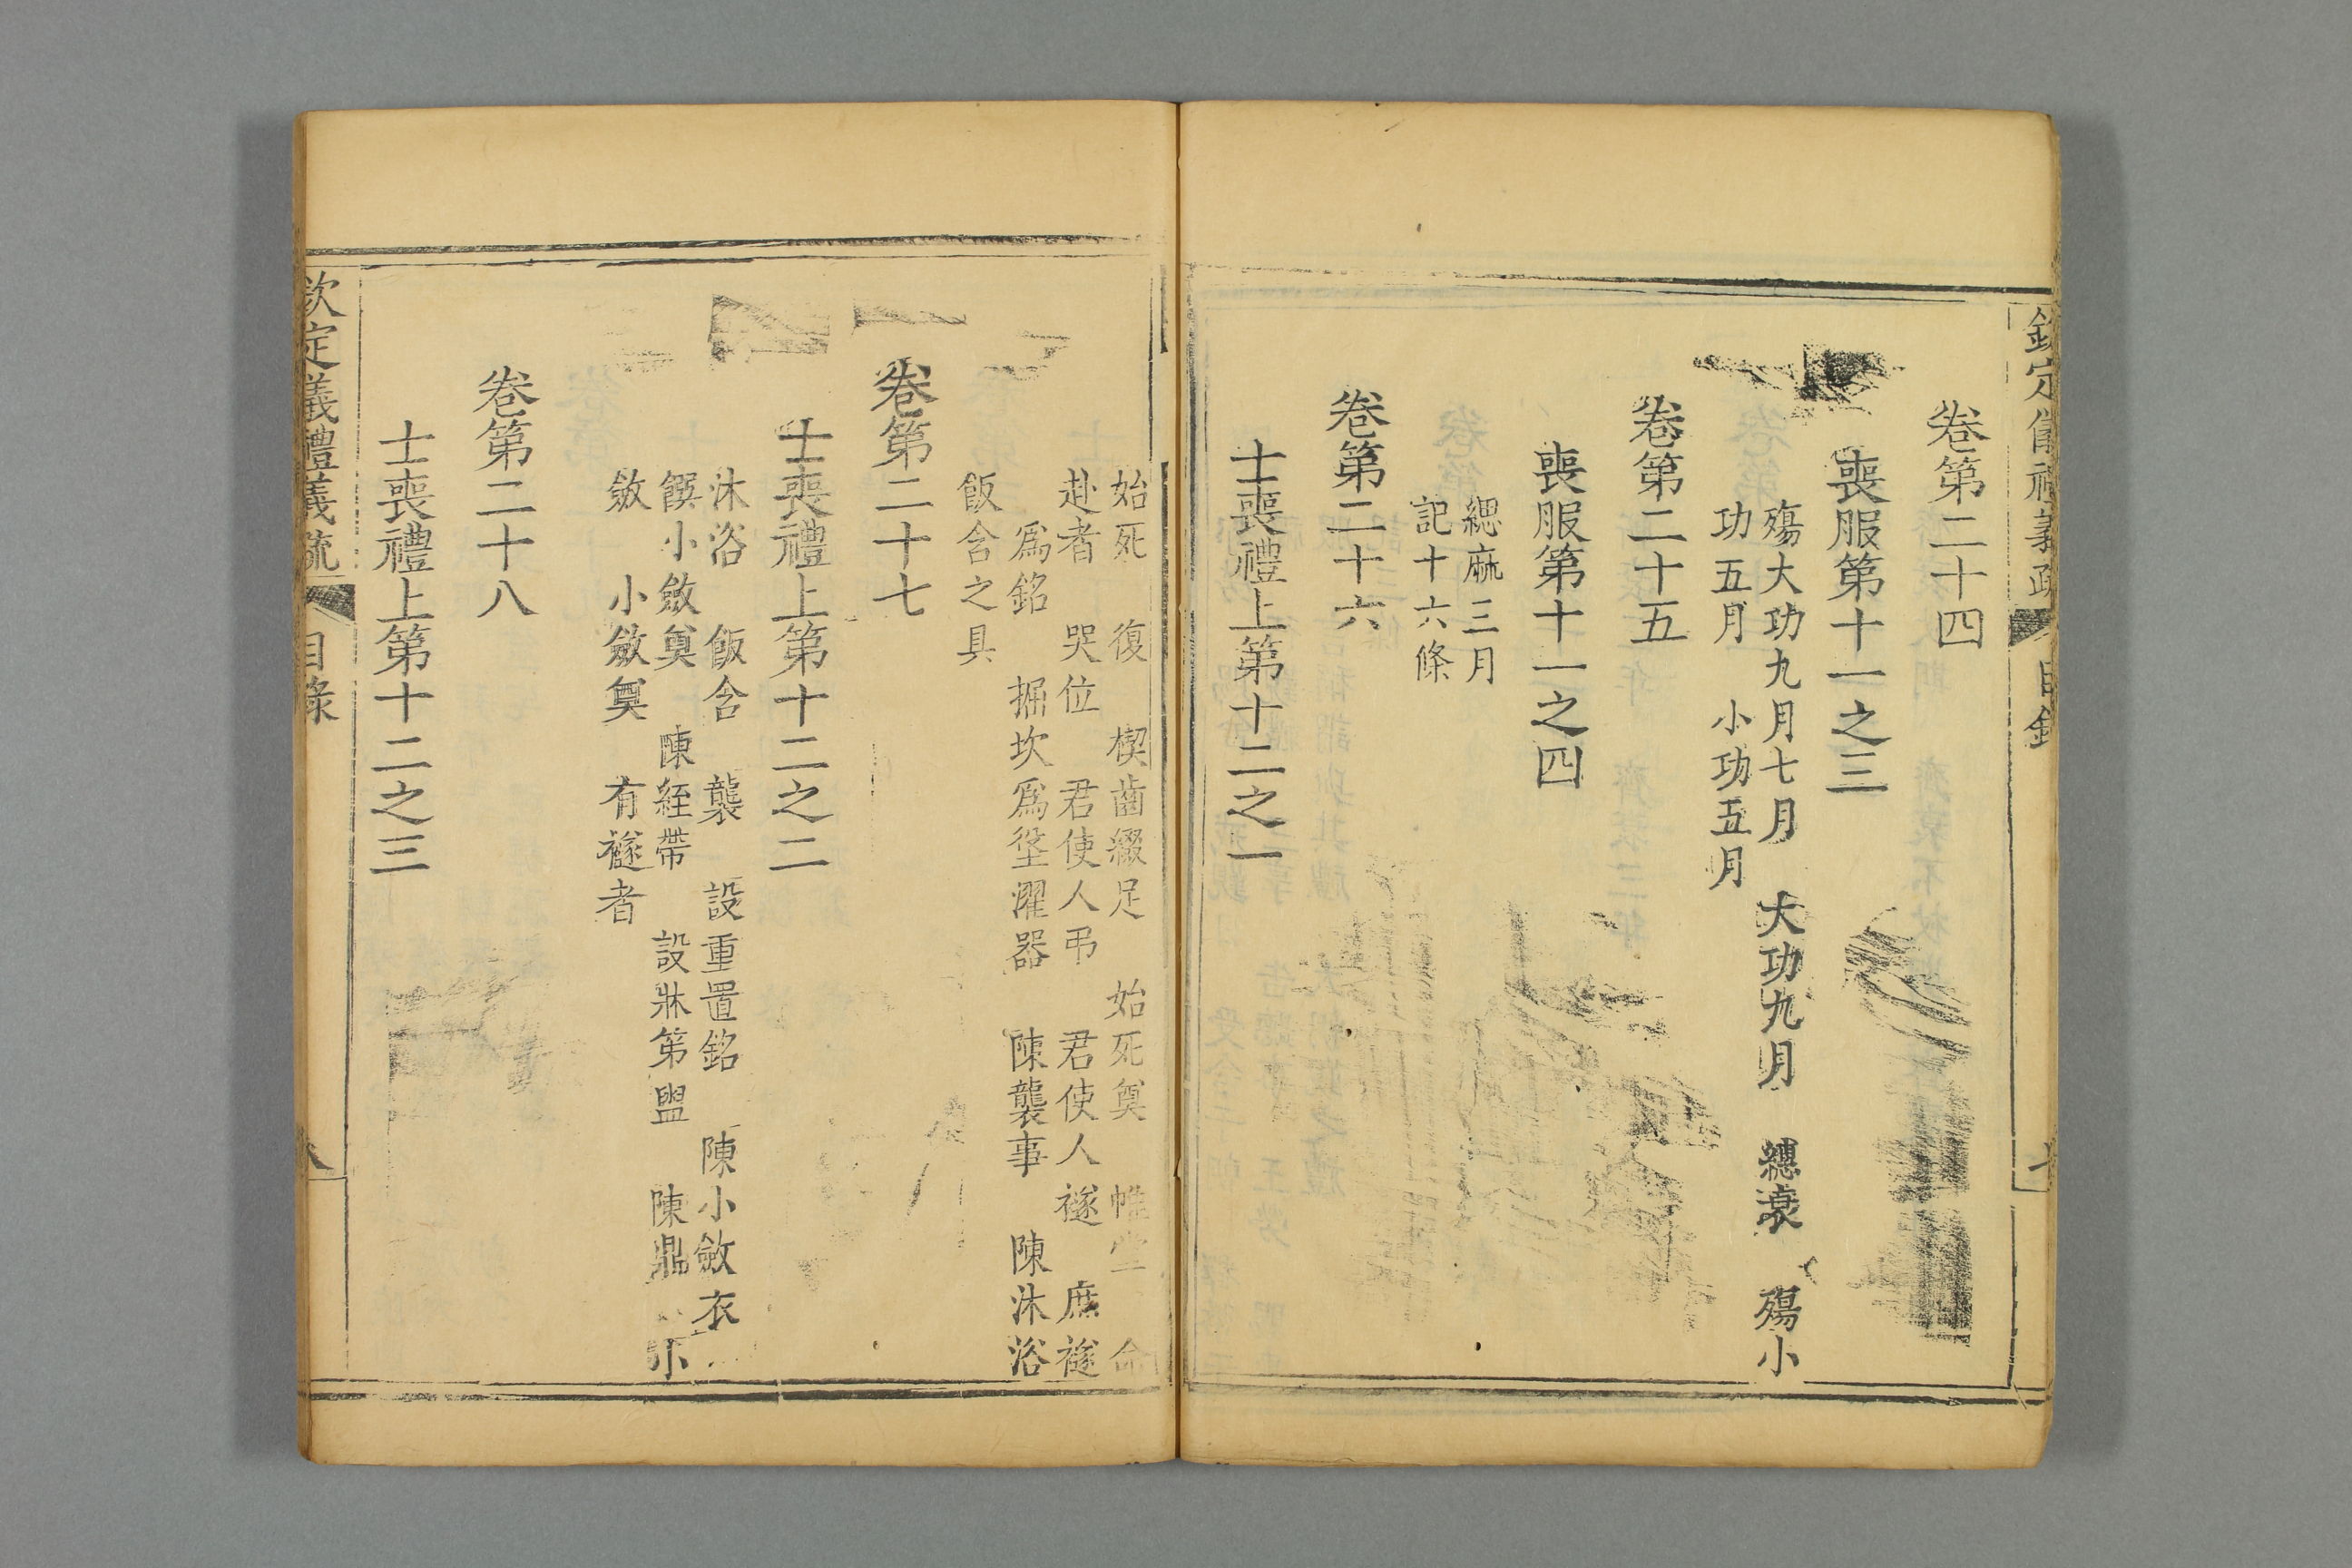 卷第二十四
喪服第十一之三
殤大功九月七月　大功九月　繐衰　殤小
功五月　小功五月
卷第二十五
喪服第十一之四
緦麻三月
記十六條
卷第二十六
士喪禮上第十二之一
始死　復　楔齒綴足　始死奠　帷堂　命
赴者　哭位　君使人弔　君使人襚　庶襚
爲銘　掘坎爲垼濯器　陳襲事　陳沐浴
飯含之具
卷第二十七
士喪禮上第十二之二
沐浴　飯含　襲　設重置銘　陳小斂衣
饌小斂奠　陳絰帶　設牀第盥　陳鼎　小
斂　小斂奠　有襚者
卷第二十八
士喪禮上第十二之三
欽定儀禮義疏　目錄　八